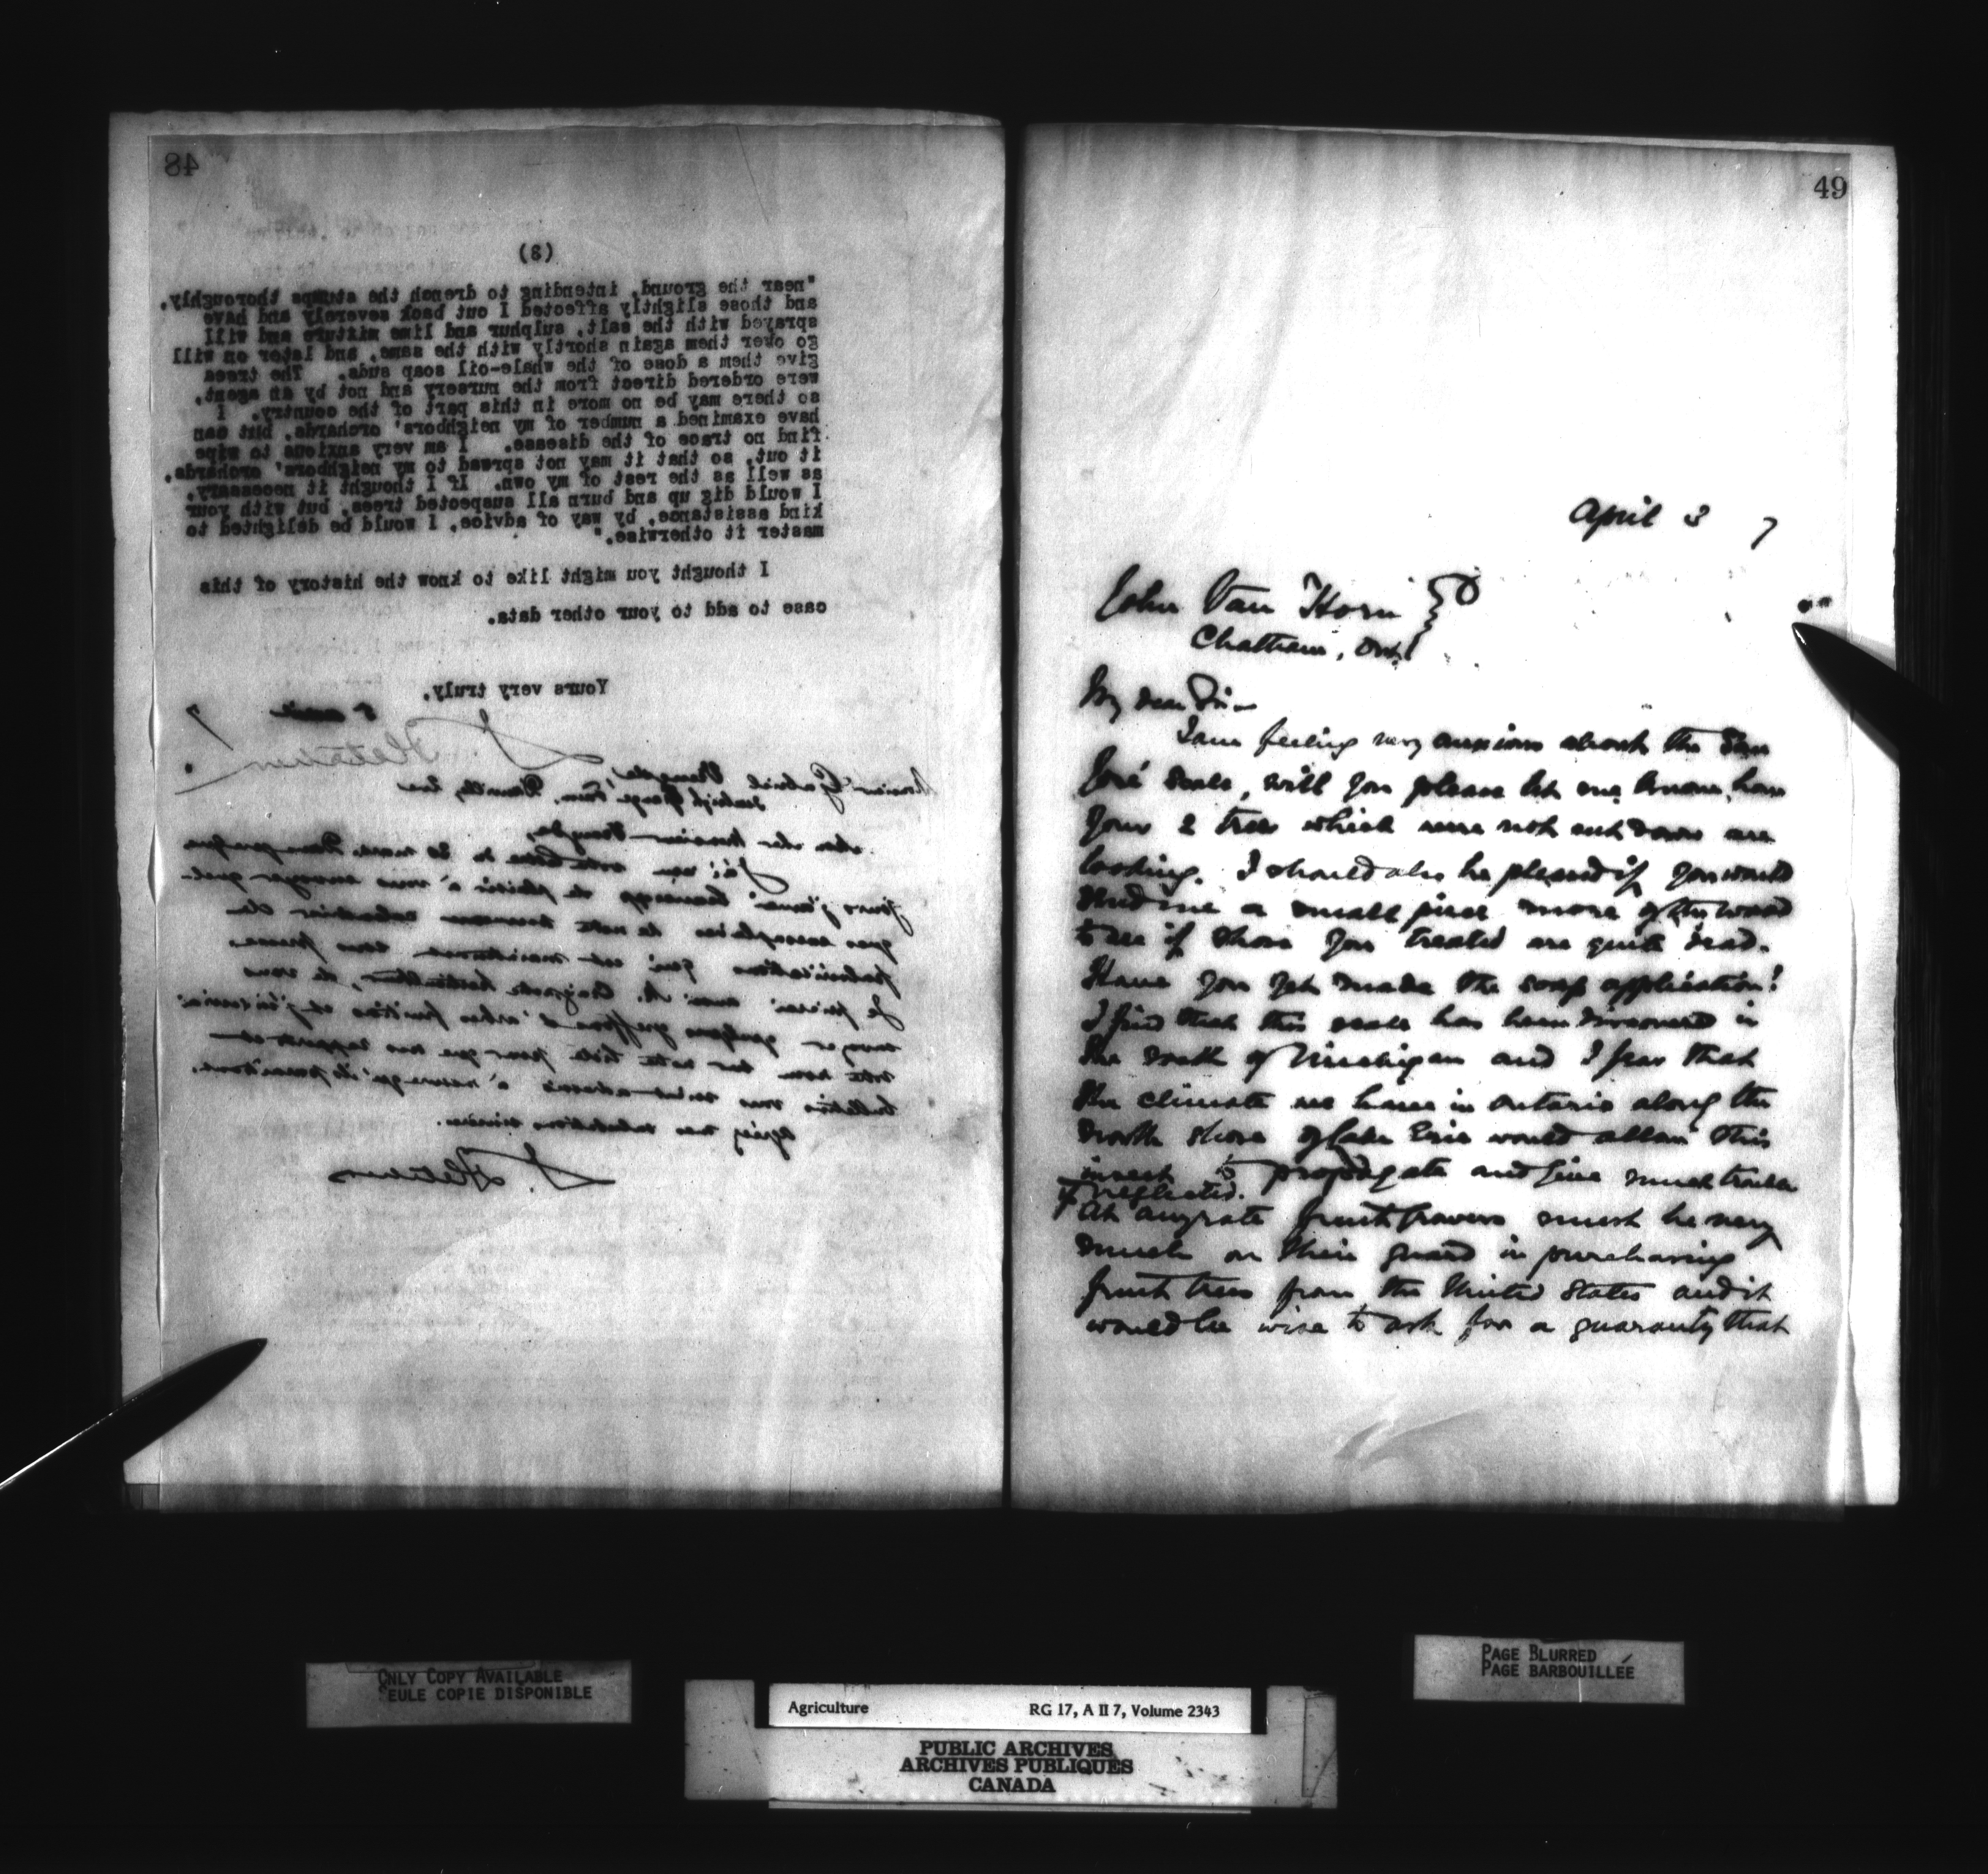 48
(3)
"near the ground, intending to drench the stumps thoroughly,
and those slightly affected I cut back severely and have
sprayed with the salt, sulphur and lime mixture and will
go over them again shortly with the same, and later on will
give them a dose of the whale-oil soap suds. The trees
were ordered direct from the nursery and not by an agent,
so there may be no more in this part of the country. I
have examined a number of my neighbors' orchards, but can
find no trace of the disease. I am very anxious to wipe
it out, so that it may not spread to my neighbors' orchards,
as well as the rest of my own. If I thought it necessary,
I would dig up and burn all suspected trees, but with your
kind assistance, by way of advice, I would be delighted to
master it otherwise."
I thought you might like to know the history of this
case to add to your other data.
Yours very truly,
J. Fletcher
7
Monsieur Gabriel
Mon cher Monsieur
J'ai reçu votre lettre du 30 mars. Dans quelques
jours j'aurai beaucoup de plaisir à vous envoyer quel-
ques exemplaires de notre nouveau calendrier de
qui est maintenant sous presse.
Je prierai aussi M. Craig, notre horticulteur, de vous
envoyer quelques greffons d'arbres fruitiers et j'inscrirai
votre nom sur notre liste pour que nos rapports et
bulletins vous soient adressés à mesure qu'ils paraîtront.
Agréez mes salutations sincères.
J. Fletcher
49
April 3 7
John Van Horn
Chatham, Ont.
My dear Sir—
I am feeling very anxious about the San
José scale, will you please let me know how
your 2 trees which were not cut down are
looking. I should also be pleased if you would
send me a small piece more of the wood
to see if those you treated are quite dead.
Have you yet made the soap application?
I find that this scale has been discovered in
the south of Michigan and I fear that
the climate we have in Ontario along the
north shore of Lake Erie would allow this
insect to propagate and give much trouble
if neglected.
At any rate fruit growers must be very
much on their guard in purchasing
fruit trees from the United States and it
would be wise to ask for a guaranty that
ONLY COPY AVAILABLE
SEULE COPIE DISPONIBLE
PAGE BLURRED
PAGE BARBOUILLÉE
Agriculture RG 17, A II 7, Volume 2343
PUBLIC ARCHIVES
ARCHIVES PUBLIQUES
CANADA